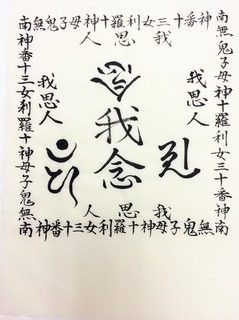 南無鬼子母神十羅利女三十番神
人思我
南無鬼子母神十羅利女三十番神
我思人
我念
我思人
神番十三女利羅十神母子鬼無南
人思我
神番十三女利羅十神母子鬼無南